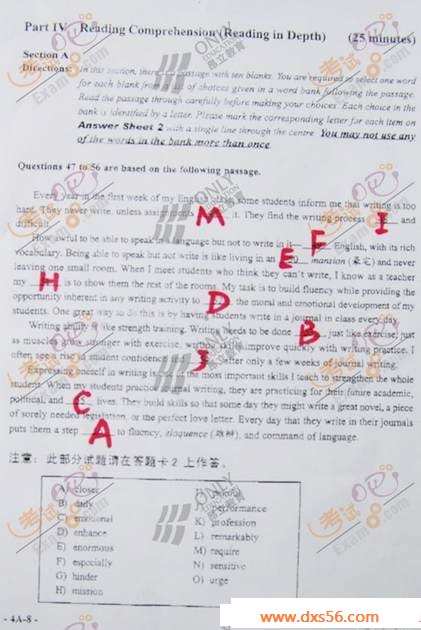 Part IV Reading Comprehension (Reading in Depth) (25 minutes)
Section A
Directions: In this section, there is a passage with ten blanks. You are required to select one word
for each blank from a list of choices given in a word bank following the passage.
Read the passage through carefully before making your choices. Each choice in the
bank is identified by a letter. Please mark the corresponding letter for each item on
Answer Sheet 2 with a single line through the centre. You may not use any
of the words in the bank more than once.
Questions 47 to 56 are based on the following passage.
Every year in the first week of my English class, some students inform me that writing is too
hard. They never write, unless assignments M it. They find the writing process I and
difficult.
How awful to be able to speak in a language but not to write in it F English, with its rich
vocabulary. Being able to speak but not write is like living in an E mansion (豪宅) and never
leaving one small room. When I meet students who think they can't write, I know as a teacher
my H is to show them the rest of the rooms. My task is to build fluency while providing the
opportunity inherent in any writing activity to D the moral and emotional development of my
students. One great way to do this is by having students write in a journal in class every day.
Writing ability is like strength training. Writing needs to be done B, just like exercise; just
as muscles grow stronger with exercise, writing skills improve quickly with writing practice. I
often see a rise in student confidence J after only a few weeks of journal writing.
Expressing oneself in writing is one of the most important skills I teach to strengthen the whole
student. When my students practice journal writing, they are practicing for their future academic,
political, and C lives. They build skills so that some day they might write a great novel, a piece
of sorely needed legislation, or the perfect love letter. Every day that they write in their journals
puts them a step A to fluency, eloquence (雄辩), and command of language.
注意：此部分试题请在答题卡 2 上作答。
A) closer
B) daily
C) emotional
D) enhance
E) enormous
F) especially
G) hinder
H) mission
J) performance
K) profession
L) remarkably
M) require
N) sensitive
O) urge
- 4A-8 -
www.dxs56.com
ONLY
昂立教育
考试吧
Exam8.com